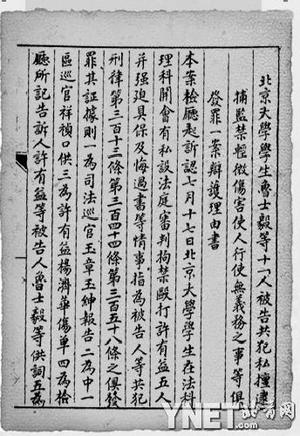 北京大學學生魯士毅等十一人被告共犯私擅逮
捕監禁輕微傷害使人行使無義務之事等俱
發罪一案辯護理由書
本案檢廳起訴認七月十七日北京大學學生在法科
理科開會有私設法庭審判拘禁毆打許有益五人
并强迫具保及悔過書等情事指為被告人等共犯
刑律第三百十三條第三百四十四條第三百五十八條之俱發
罪其證據則一為司法巡官玉章玉紳報告二為中一
區巡官祥禎口供三為許有益楊濟華傷單四為檢
廳所記告訴人許有益等被告人魯士毅等供詞五為
YNET.com 北青网